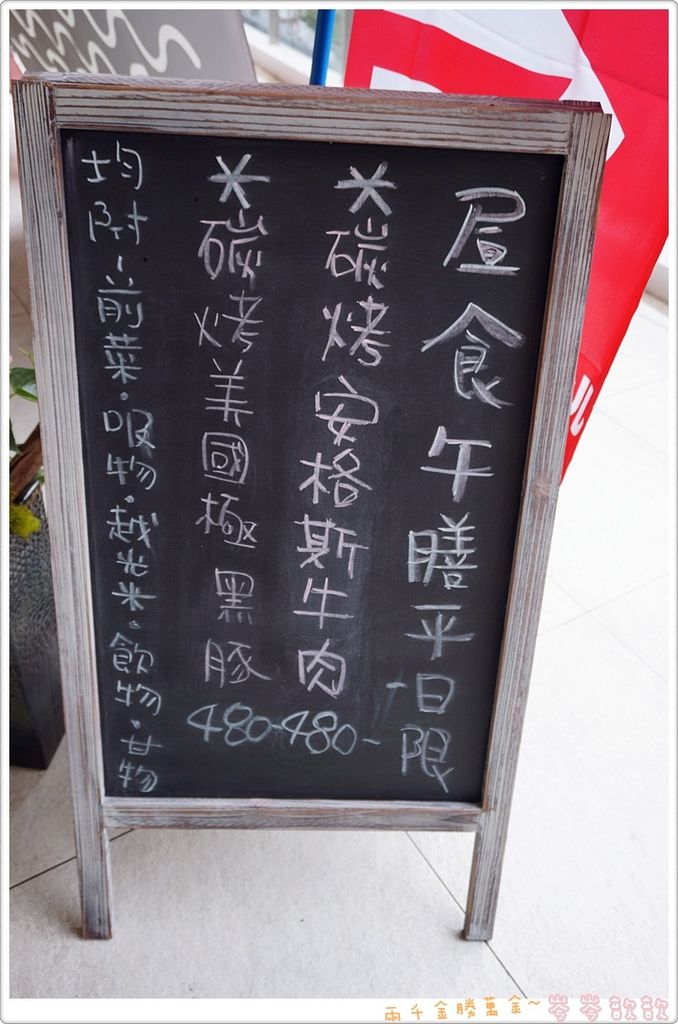 昼食午膳平日限
*碳烤安格斯牛肉480-
*碳烤美國極黑豚480-
均附~前菜·吸物·越光米·飲物·甘物
兩千金勝萬金~岑岑歆歆